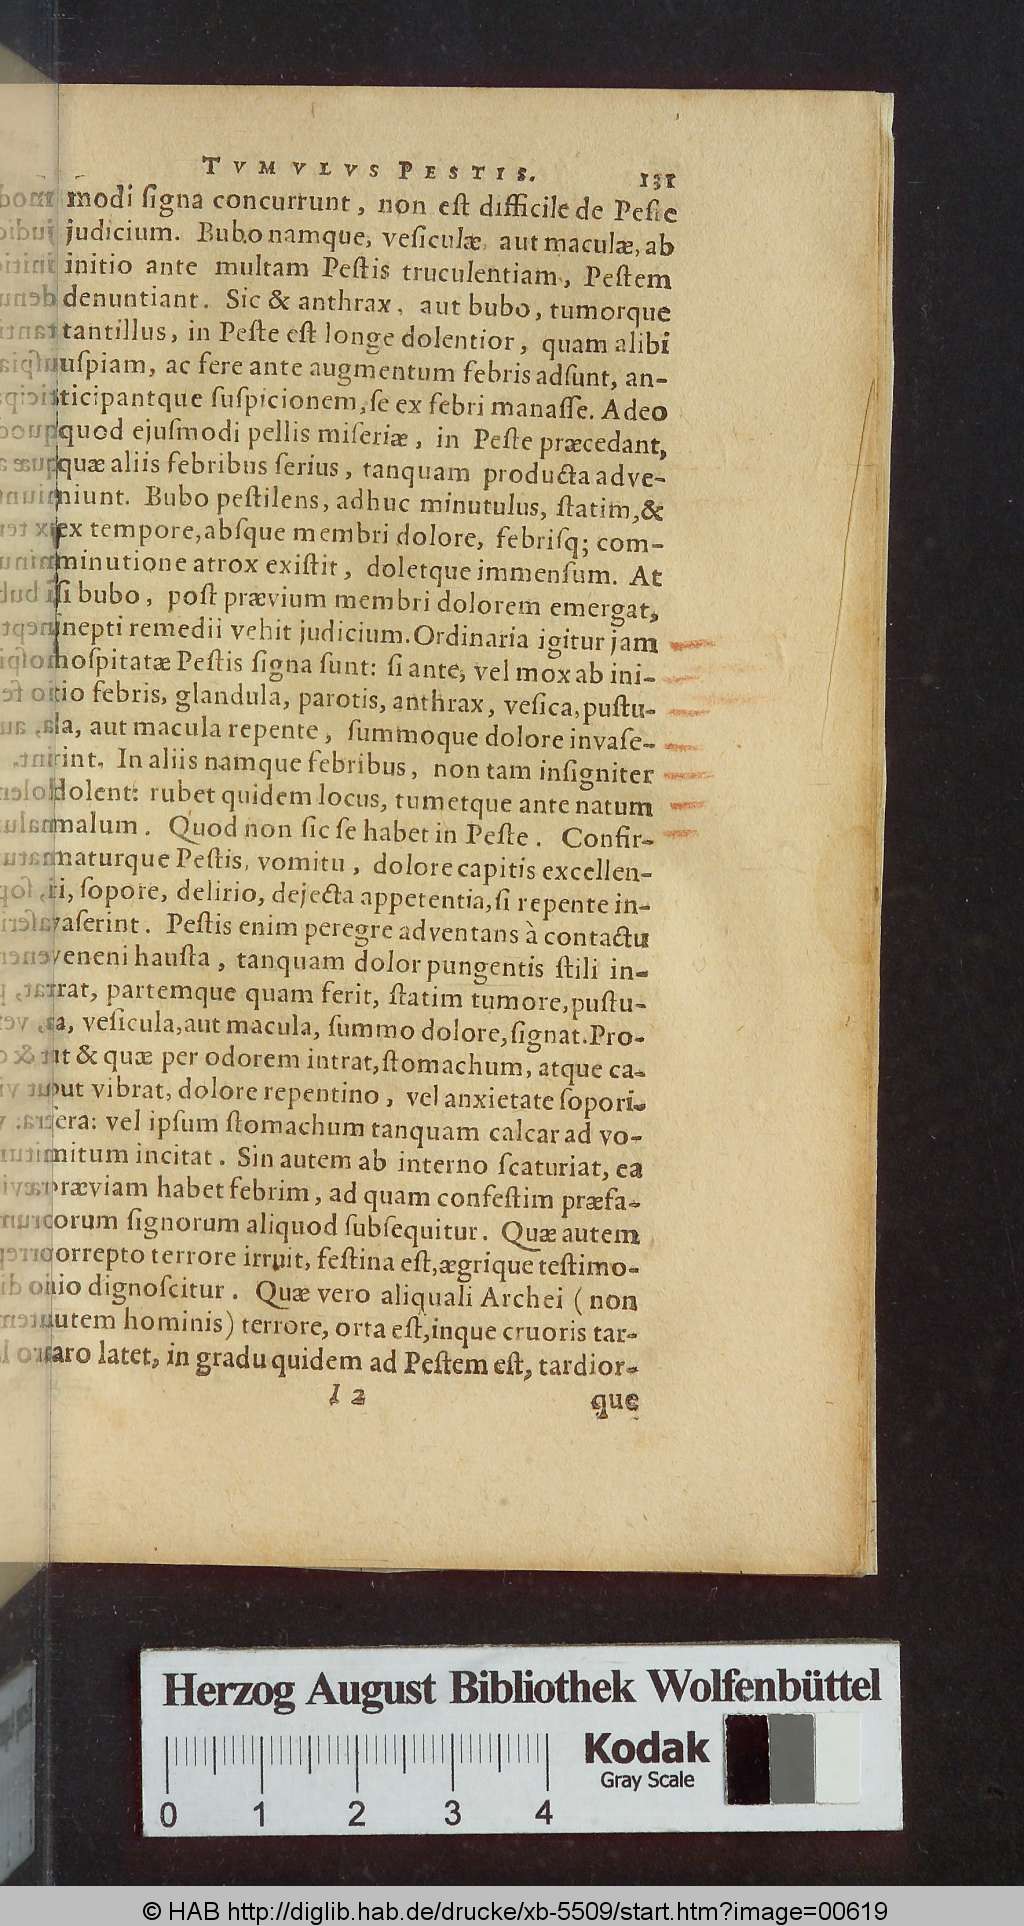 TVMVLVS PESTIS. 131
modi ſigna concurrunt, non eſt difficile de Peſte
judicium. Bubo namque, veſiculæ, aut maculæ, ab
initio ante multam Peſtis truculentiam, Peſtem
denuntiant. Sic & anthrax, aut bubo, tumorque
tantillus, in Peſte eſt longe dolentior, quam alibi
uſpiam, ac fere ante augmentum febris adſunt, an-
ticipantque ſuſpicionem, ſe ex febri manaſſe. Adeo
quod ejuſmodi pellis miſeriæ, in Peſte præcedant,
quæ aliis febribus ſerius, tanquam producta adve-
niunt. Bubo peſtilens, adhuc minutulus, ſtatim, &
ex tempore, abſque membri dolore, febriſq; com-
minutione atrox exiſtit, doletque immenſum. At
ſi bubo, poſt prævium membri dolorem emergat,
inepti remedii vehit judicium. Ordinaria igitur jam
hoſpitatæ Peſtis ſigna ſunt: ſi ante, vel mox ab ini-
tio febris, glandula, parotis, anthrax, veſica, puſtu-
la, aut macula repente, ſummoque dolore invaſe-
rint. In aliis namque febribus, non tam inſigniter
dolent: rubet quidem locus, tumetque ante natum
malum. Quod non ſic ſe habet in Peſte. Confir-
maturque Peſtis, vomitu, dolore capitis excellen-
ti, ſopore, delirio, dejecta appetentia, ſi repente in-
vaſerint. Peſtis enim peregre adventans à contactu
veneni hauſta, tanquam dolor pungentis ſtili in-
trat, partemque quam ferit, ſtatim tumore, puſtu-
la, veſicula, aut macula, ſummo dolore, ſignat. Pro-
ut & quæ per odorem intrat, ſtomachum, atque ca-
put vibrat, dolore repentino, vel anxietate ſopori-
fera: vel ipſum ſtomachum tanquam calcar ad vo-
mitum incitat. Sin autem ab interno ſcaturiat, ea
præviam habet febrim, ad quam confeſtim præfa-
torum ſignorum aliquod ſubſequitur. Quæ autem
correpto terrore irruit, feſtina eſt, ægrique teſtimo-
nio dignoſcitur. Quæ vero aliquali Archei (non
autem hominis) terrore, orta eſt, inque cruoris tar-
taro latet, in gradu quidem ad Peſtem eſt, tardior-
I 2 que
Herzog August Bibliothek Wolfenbüttel
Kodak
Gray Scale
0 1 2 3 4
© HAB http://diglib.hab.de/drucke/xb-5509/start.htm?image=00619